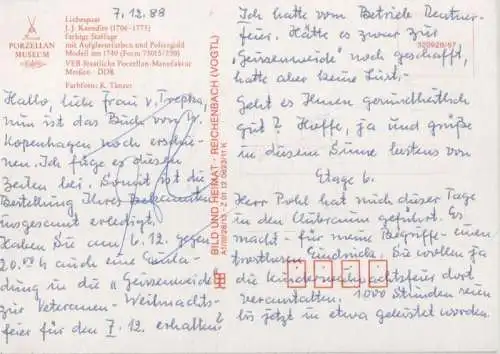 7.12.88
PORZELLAN
MUSEUM
Liebespaar
J. J. Kaendler (1706–1775)
Farbige Staffage
mit Aufglasurfarben und Poliergold
Modell um 1740 (Form 73015/550)
VEB Staatliche Porzellan-Manufaktur
Meißen · DDR
Farbfoto: K. Tänzer
Hallo, liebe Frau v. Trepka,
nun ist das Buch von W.
Kopenhagen noch erschie-
nen. Ich füge es diesen
Zeilen bei. Somit ist die
Bestellung Ihres
insgesamt erledigt.
Haben Sie am 6.12. gegen
20.00 h auch eine Einla-
dung in die "
zur Veteranen-Weihnachts-
feier für den 7.12. erhalten?
BILD UND HEIMAT · REICHENBACH (VOGTL)
Ich hatte vom Betriebe Rentner-
feier. Hätte es zwar zur
" noch geschafft,
hatte aber keine Lust.
320928/87
Geht es Ihnen gesundheitlich
gut? Hoffe, ja und grüße
in diesem Sinne bestens von
Etage 6.
Herr Pohl hat mich dieser Tage
in den Klubraum geführt. Es
macht - für meine Begriffe - einen
trostlosen Eindruck. Sie wollen ja
die Kinderweihnachtsfeier dort
veranstalten. 1000 Stunden seien
bis jetzt in etwa geleistet worden.